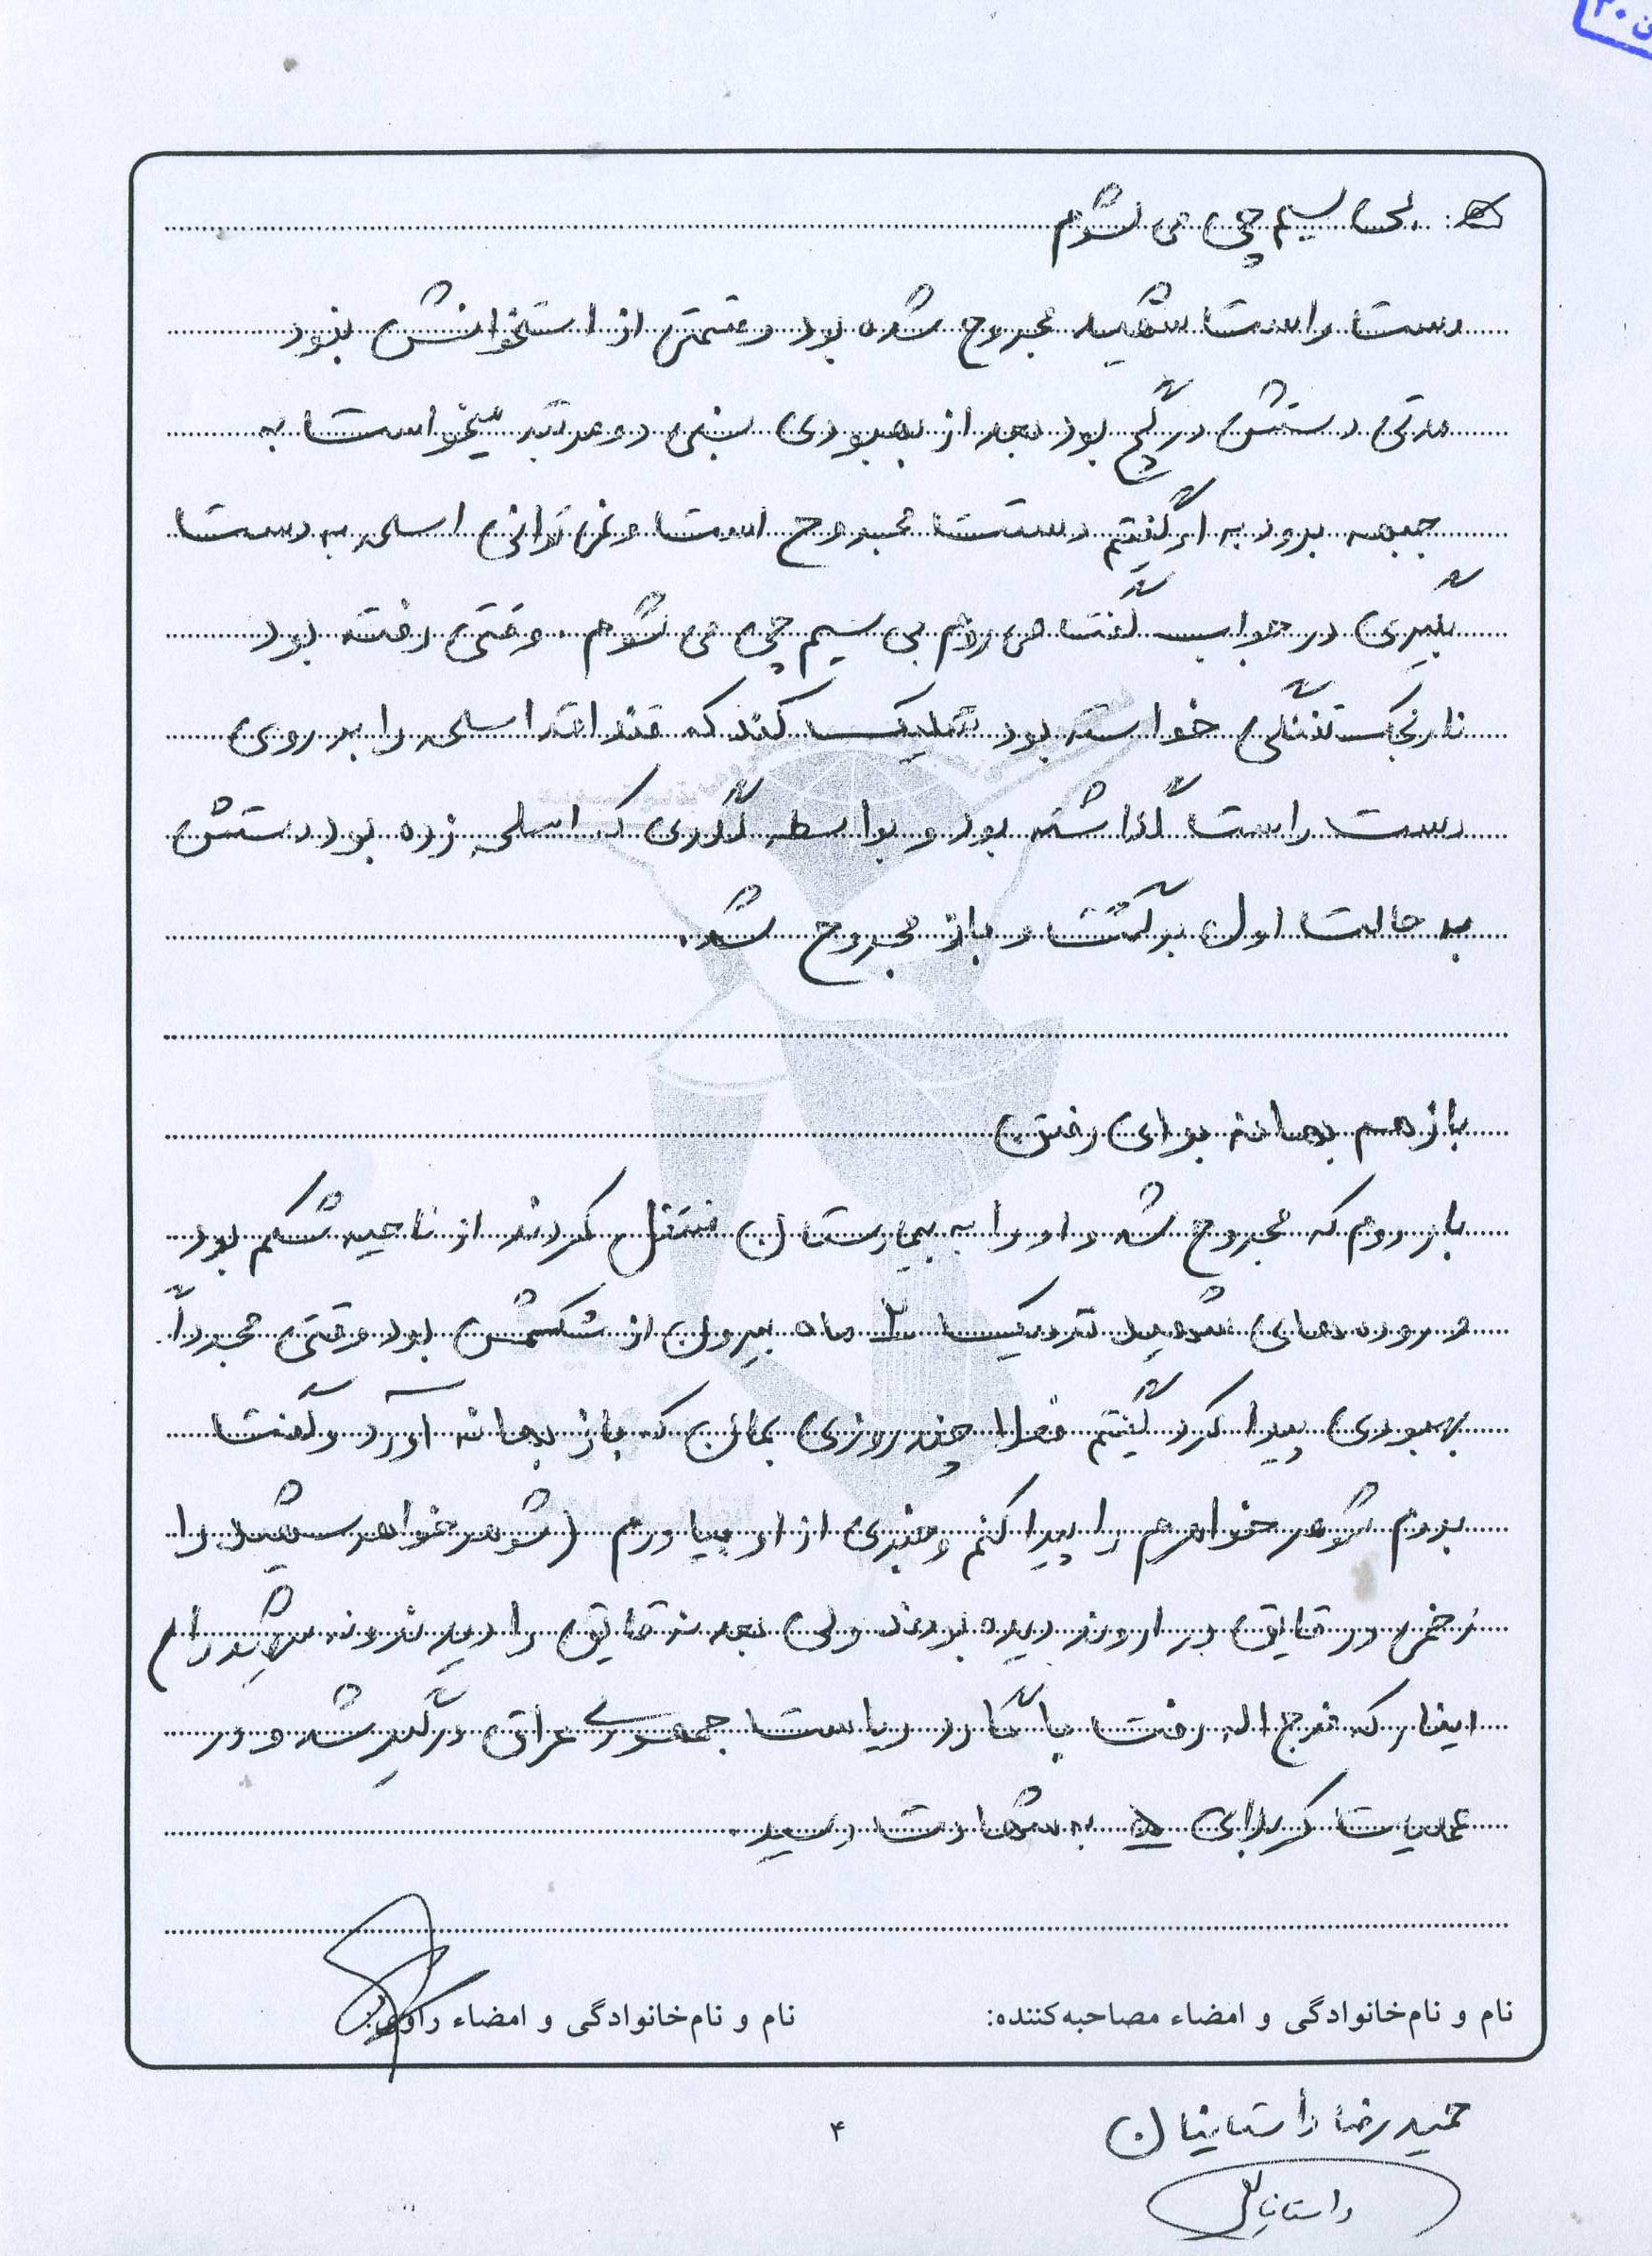 بی سیم چی می شوم
دست راست شهید مجروح شده بود و قسمتی از استخوانش نبود
مدتی دستش در گچ بود بعد از بهبودی نسبی دو مرتبه میخواست به
جبهه برود به او گفتیم دستت مجروح است و نمی توانی اسلحه به دست
بگیری در جواب گفت می روم بی سیم چی می شوم. وقتی رفته بود
نارنجک تفنگی خواسته بود شلیک کند که قنداق اسلحه را به روی
دست راست گذاشته بود و بواسطه لگدی که اسلحه زده بود دستش
به حالت اول برگشت و باز مجروح شد.
باز هم بهانه برای رفتن
بار دوم که مجروح شد و او را به بیمارستان منتقل کردند از ناحیه شکم بود
و روده های شهید نزدیک ۲ ماه بیرون از شکمش بود وقتی مجدداً
بهبودی پیدا کرد گفتیم فعلا چند روزی بمان که باز بهانه آورد و گفت
بروم شوهر خواهرم را پیدا کنم و خبری از او بیاورم (شوهر خواهر شهید را
زخمی در قایق در اروند دیده بودند ولی بعد نه قایق را دیدند و نه شهید را)
اینبار که فرج اله رفت با گارد ریاست جمهوری عراق درگیر شد و در
عملیات کربلای ۵ به شهادت رسید.
نام و نام‌خانوادگی و امضاء مصاحبه‌کننده:
نام و نام‌خانوادگی و امضاء راوی:
حمیدرضا داستانیان
۴
داستانیان